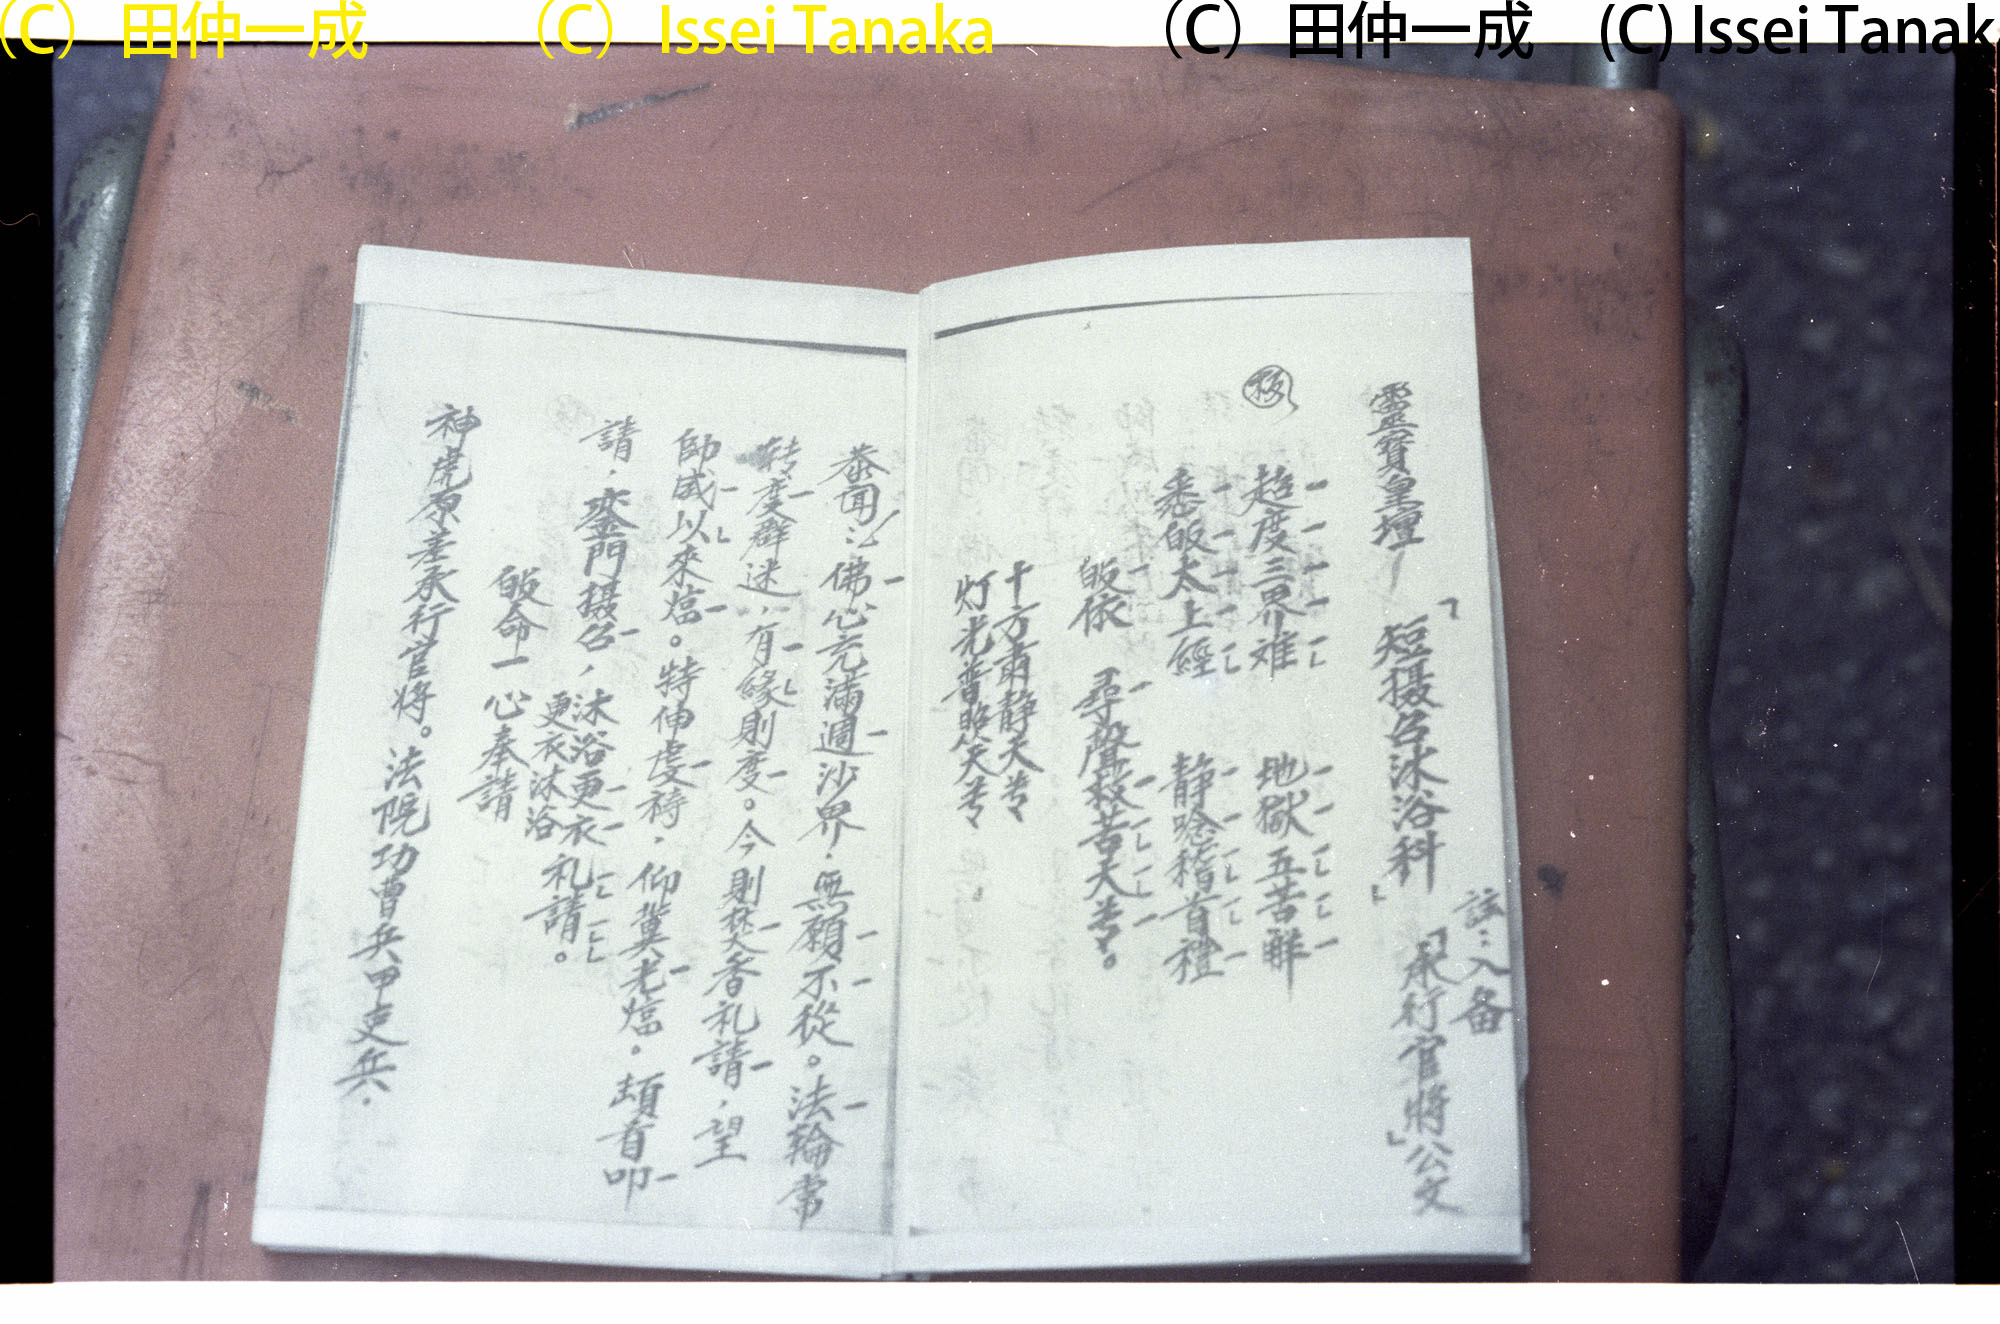 (C) 田仲一成 (C) Issei Tanaka (C) 田仲一成 (C) Issei Tanak
靈寶皇壇 「短摄召沐浴科」
註：入备
「承行官將」公文
超度三界难 地獄五苦解
悉皈太上經 静唸稽首禮
皈依 尋聲救苦天尊。
十方肅静天尊
灯光普照天尊
恭聞：佛心充滿週沙界．無願不從。法輪常
转度群迷，有緣則度。今則焚香礼請，望
師威以來臨。特伸虔禱，仰冀光臨。頓首叩
請，啓門摄召，沐浴更衣
更衣沐浴
礼請。
皈命一心奉請
神虎原差承行官将。法院功曹兵甲吏兵．